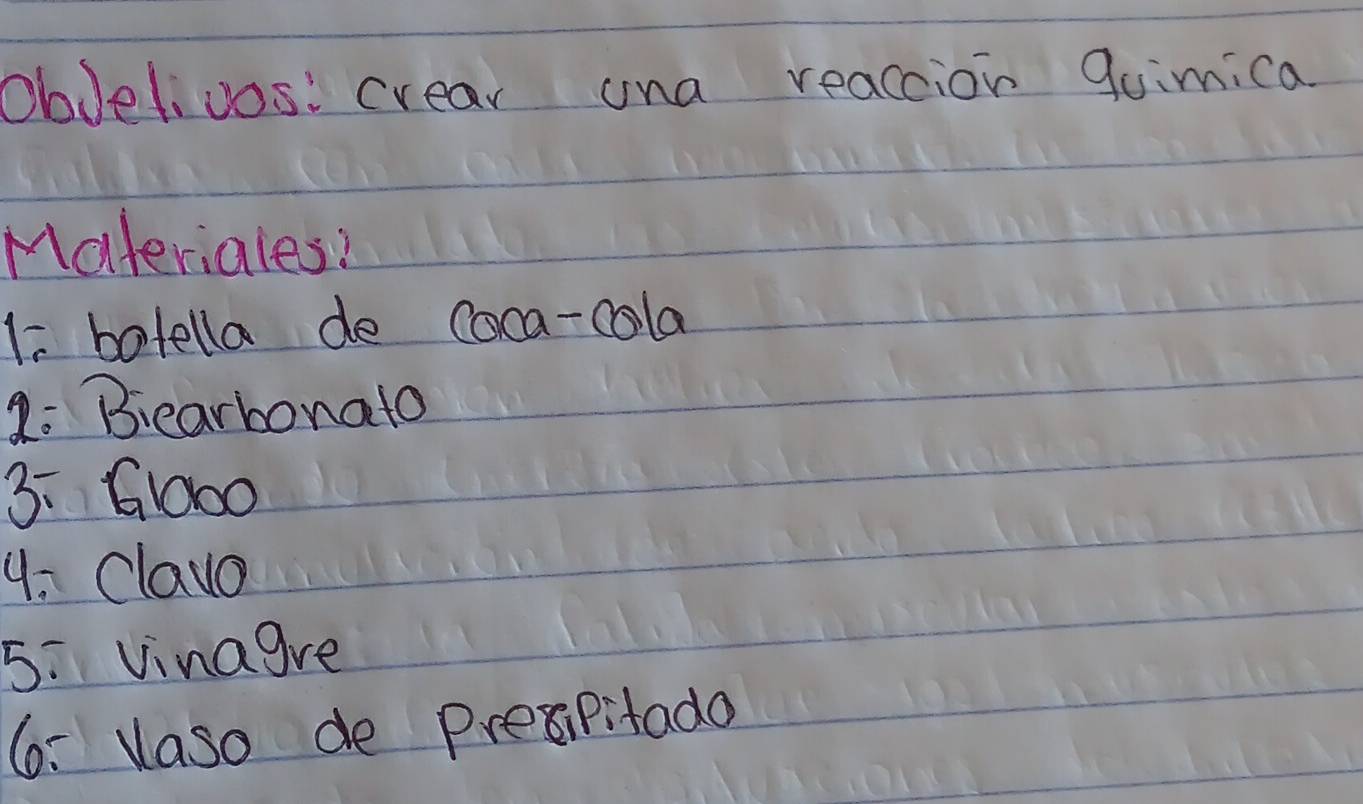 Objetivos: crear una reacción quimica
Materiales:
1.- botella de Coca-Cola
2.- Bicarbonato
3.- Glabo
4.- Clavo
5.- Vinagre
6.- Vaso de precipitado